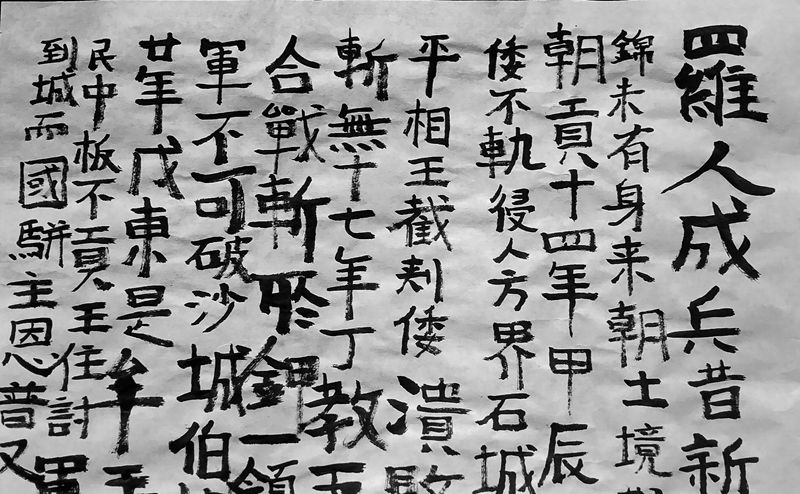 四羅人成兵昔新
錦未有身来朝土境
朝貢十四年甲辰
倭不軌侵人方界石城
平相王截刾倭潰敗
斬無十七年丁教王
合戰斬形鉀一領
軍不可破沙城伯
廿年戊東是牟王
民中板不貢王住討軍
到城而國駢主恩普又